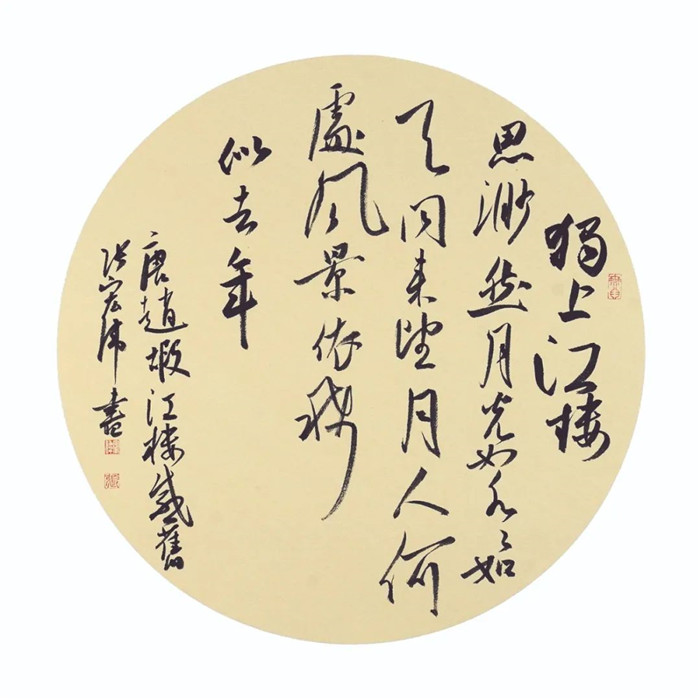 獨上江楼
思渺然月光如水水如
天同来望月人何
處風景依稀
似去年
唐趙嘏江楼感舊
张宏伟書